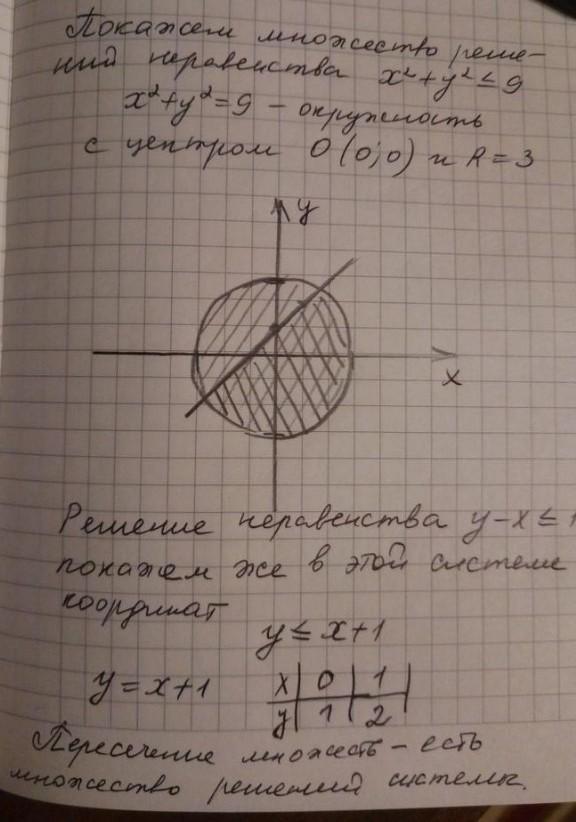 Покажем множество реше-
ний неравенства x²+y² ≤ 9
x²+y²=9 – окружность
с центром O (0;0) и R = 3
y
x
Решение неравенства y-x ≤ 1
покажем же в этой системе
координат
y ≤ x+1
y = x+1 x | 0 | 1 |
y | 1 | 2
Пересечение множеств – есть
множество решений системы.